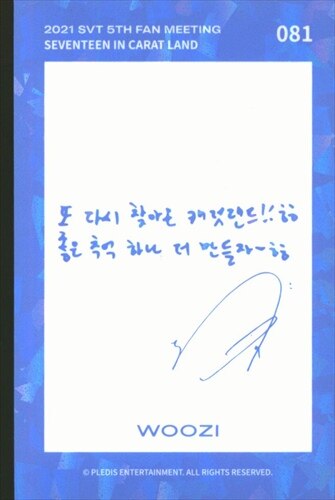 2021 SVT 5TH FAN MEETING
SEVENTEEN IN CARAT LAND
081
또 다시 찾아온 캐럿랜드!!ㅎㅎ
좋은 추억 하나 더 만들자~ㅎㅎ
WOOZI
© PLEDIS ENTERTAINMENT. ALL RIGHTS RESERVED.